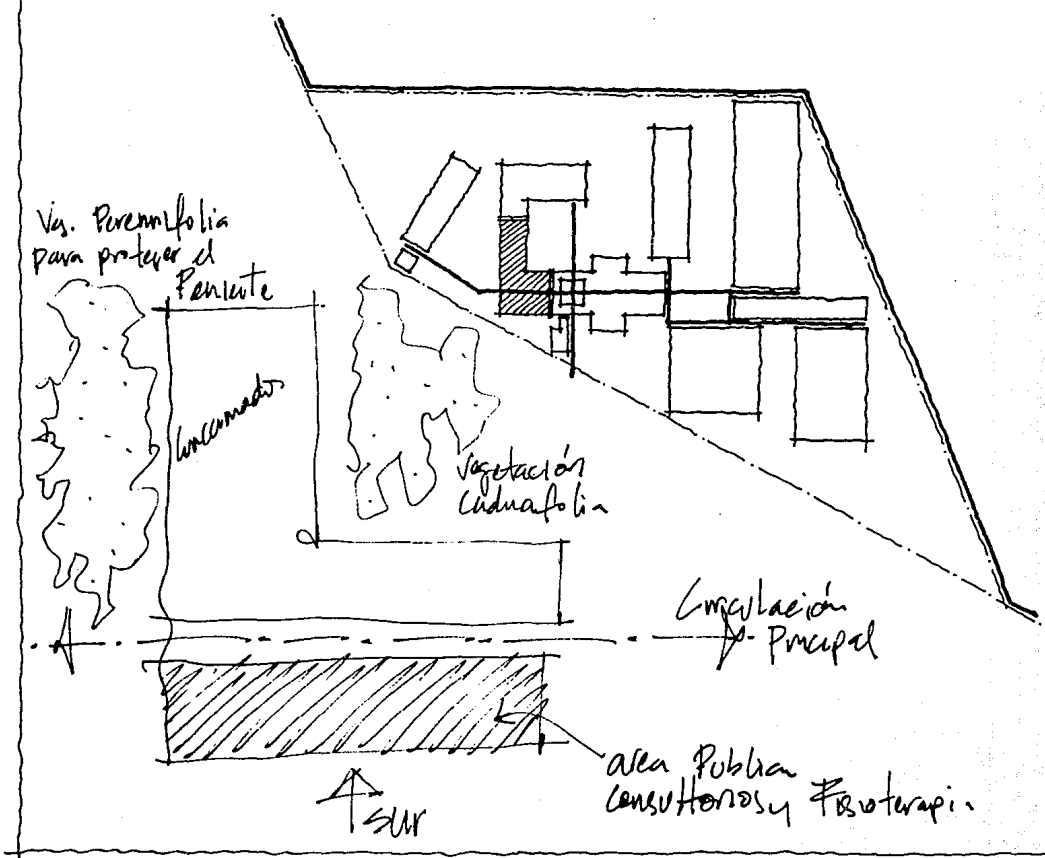 Veg. Perennifolia
para proteger el
Poniente
Vegetación
Caducifolia
Circulación
Principal
area Publica
consultorios y Fisioterapia
sur